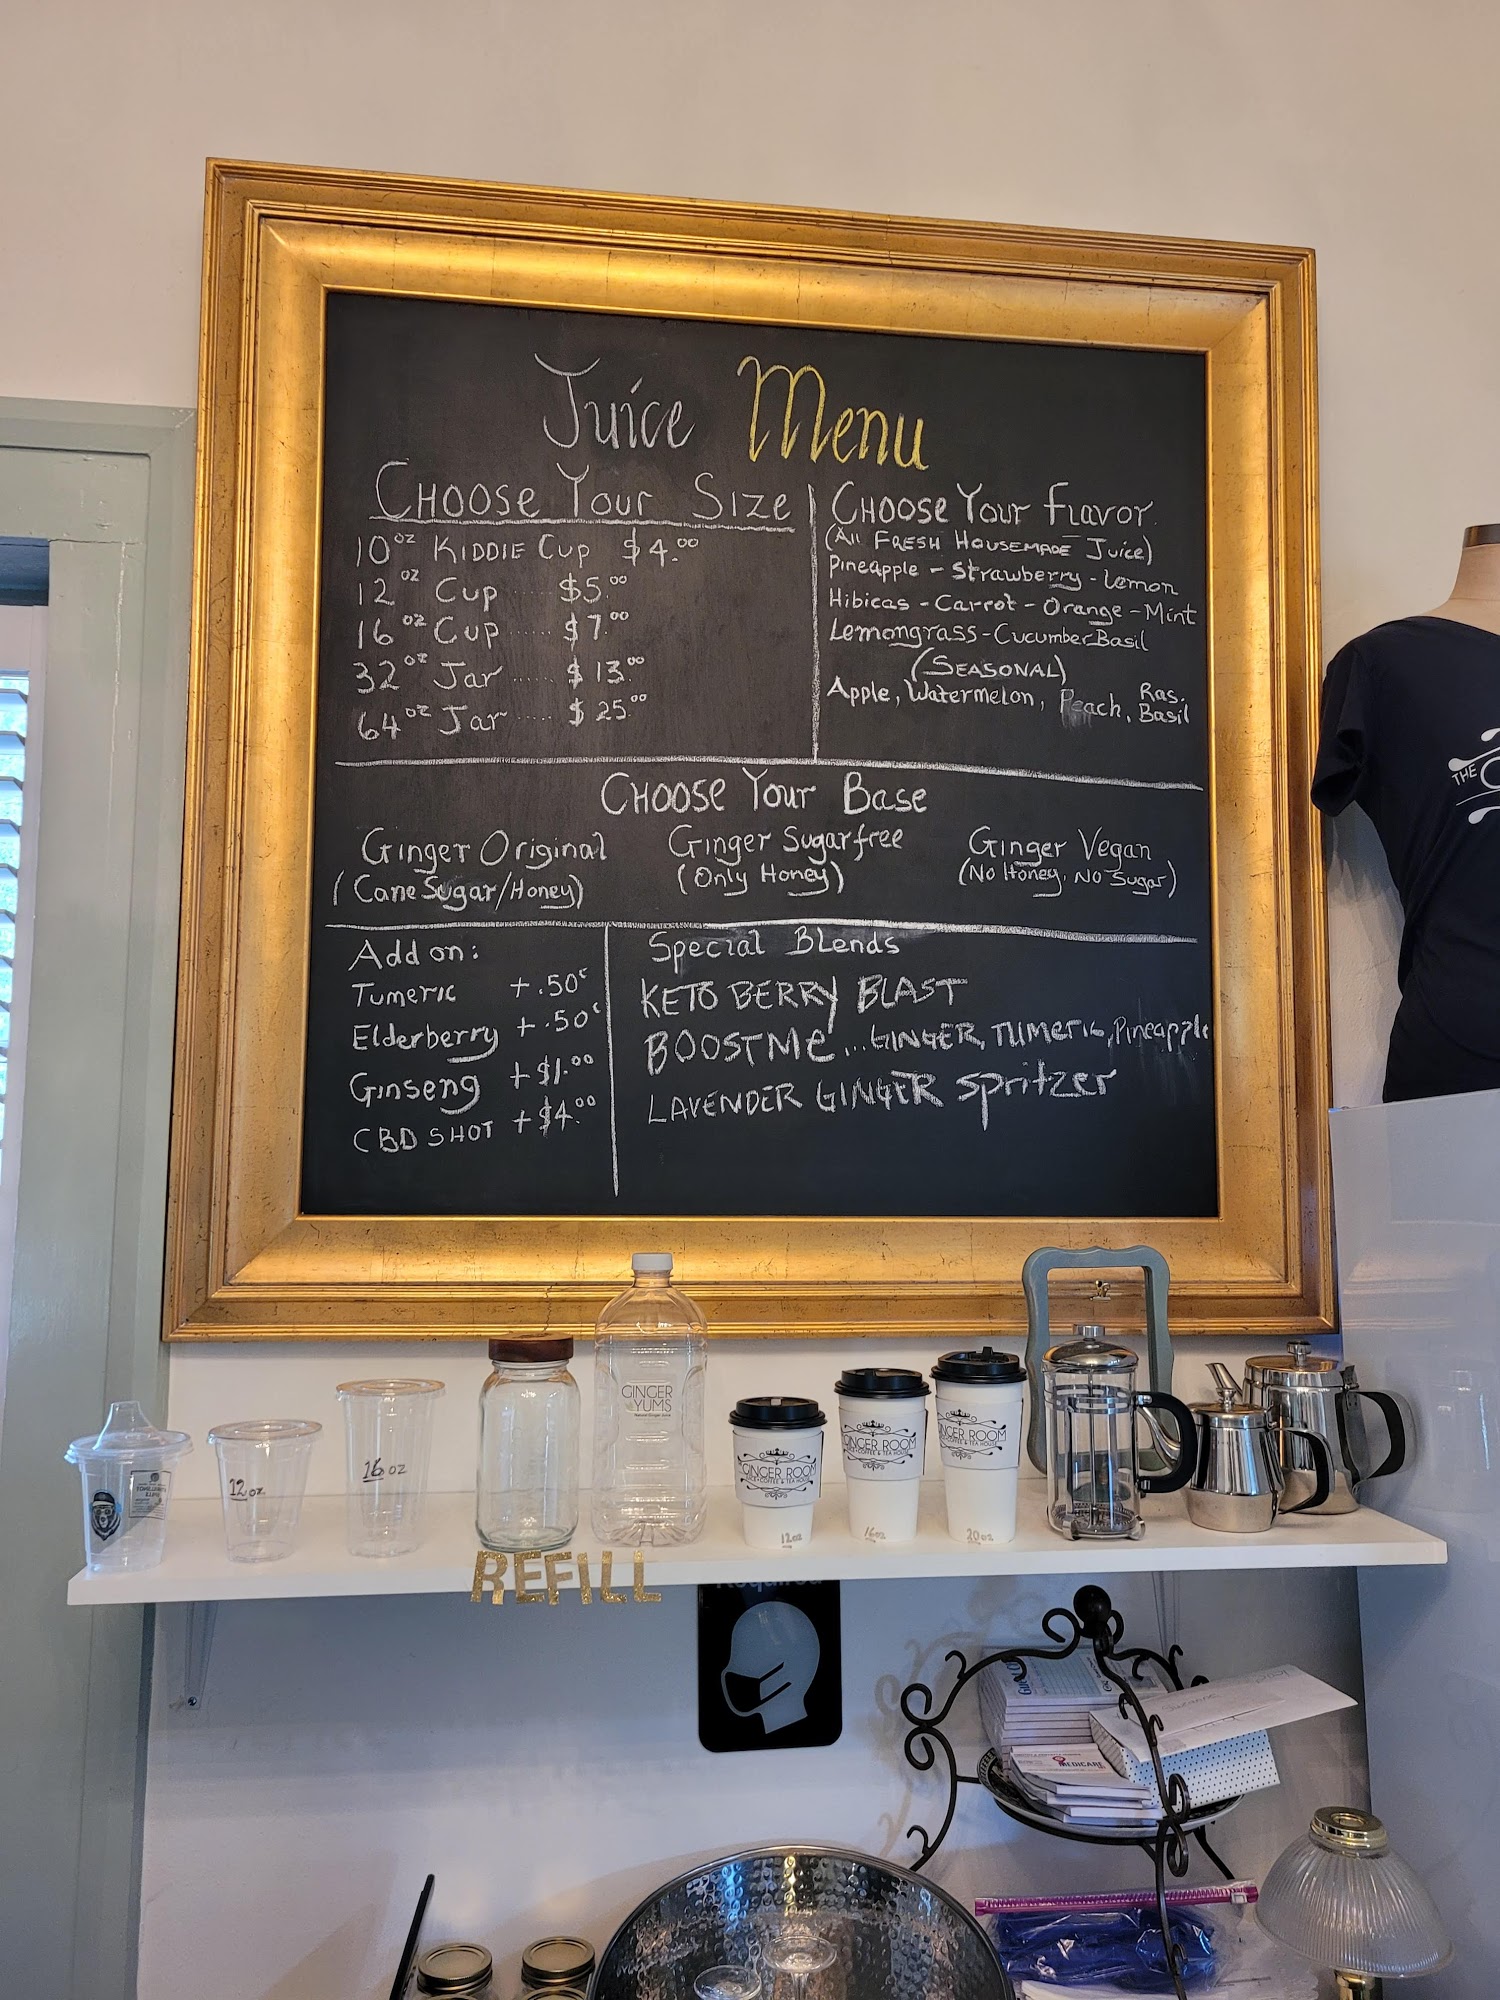 Juice Menu
Choose Your Size
10 oz Kiddie Cup $4.00
12 oz Cup ..... $5.00
16 oz Cup ...... $7.00
32 oz Jar ..... $13.00
64 oz Jar ..... $25.00
Choose Your Flavor
(All Fresh Housemade Juice)
Pineapple - Strawberry - Lemon
Hibicas - Carrot - Orange - Mint
Lemongrass - Cucumber Basil
(Seasonal)
Apple, Watermelon, Peach, Ras. Basil
Choose Your Base
Ginger Original
(Cane Sugar/Honey)
Ginger Sugarfree
(Only Honey)
Ginger Vegan
(No Honey, No Sugar)
Add on:
Tumeric +.50¢
Elderberry +.50¢
Ginseng +$1.00
CBD SHOT +$4.00
Special Blends
KETO BERRY BLAST
BOOSTME... GINGER, TUMERIC, Pineapple
LAVENDER GINGER Spritzer
THE
12 oz.
16 oz
GINGER
YUMS
Natural Ginger Juice
GINGER ROOM
JUICE • COFFEE & TEA HOUSE
12oz
GINGER ROOM
COFFEE & TEA HOUSE
16oz
GINGER ROOM
COFFEE & TEA HOUSE
20oz
REFILL
Required
MEDICARE